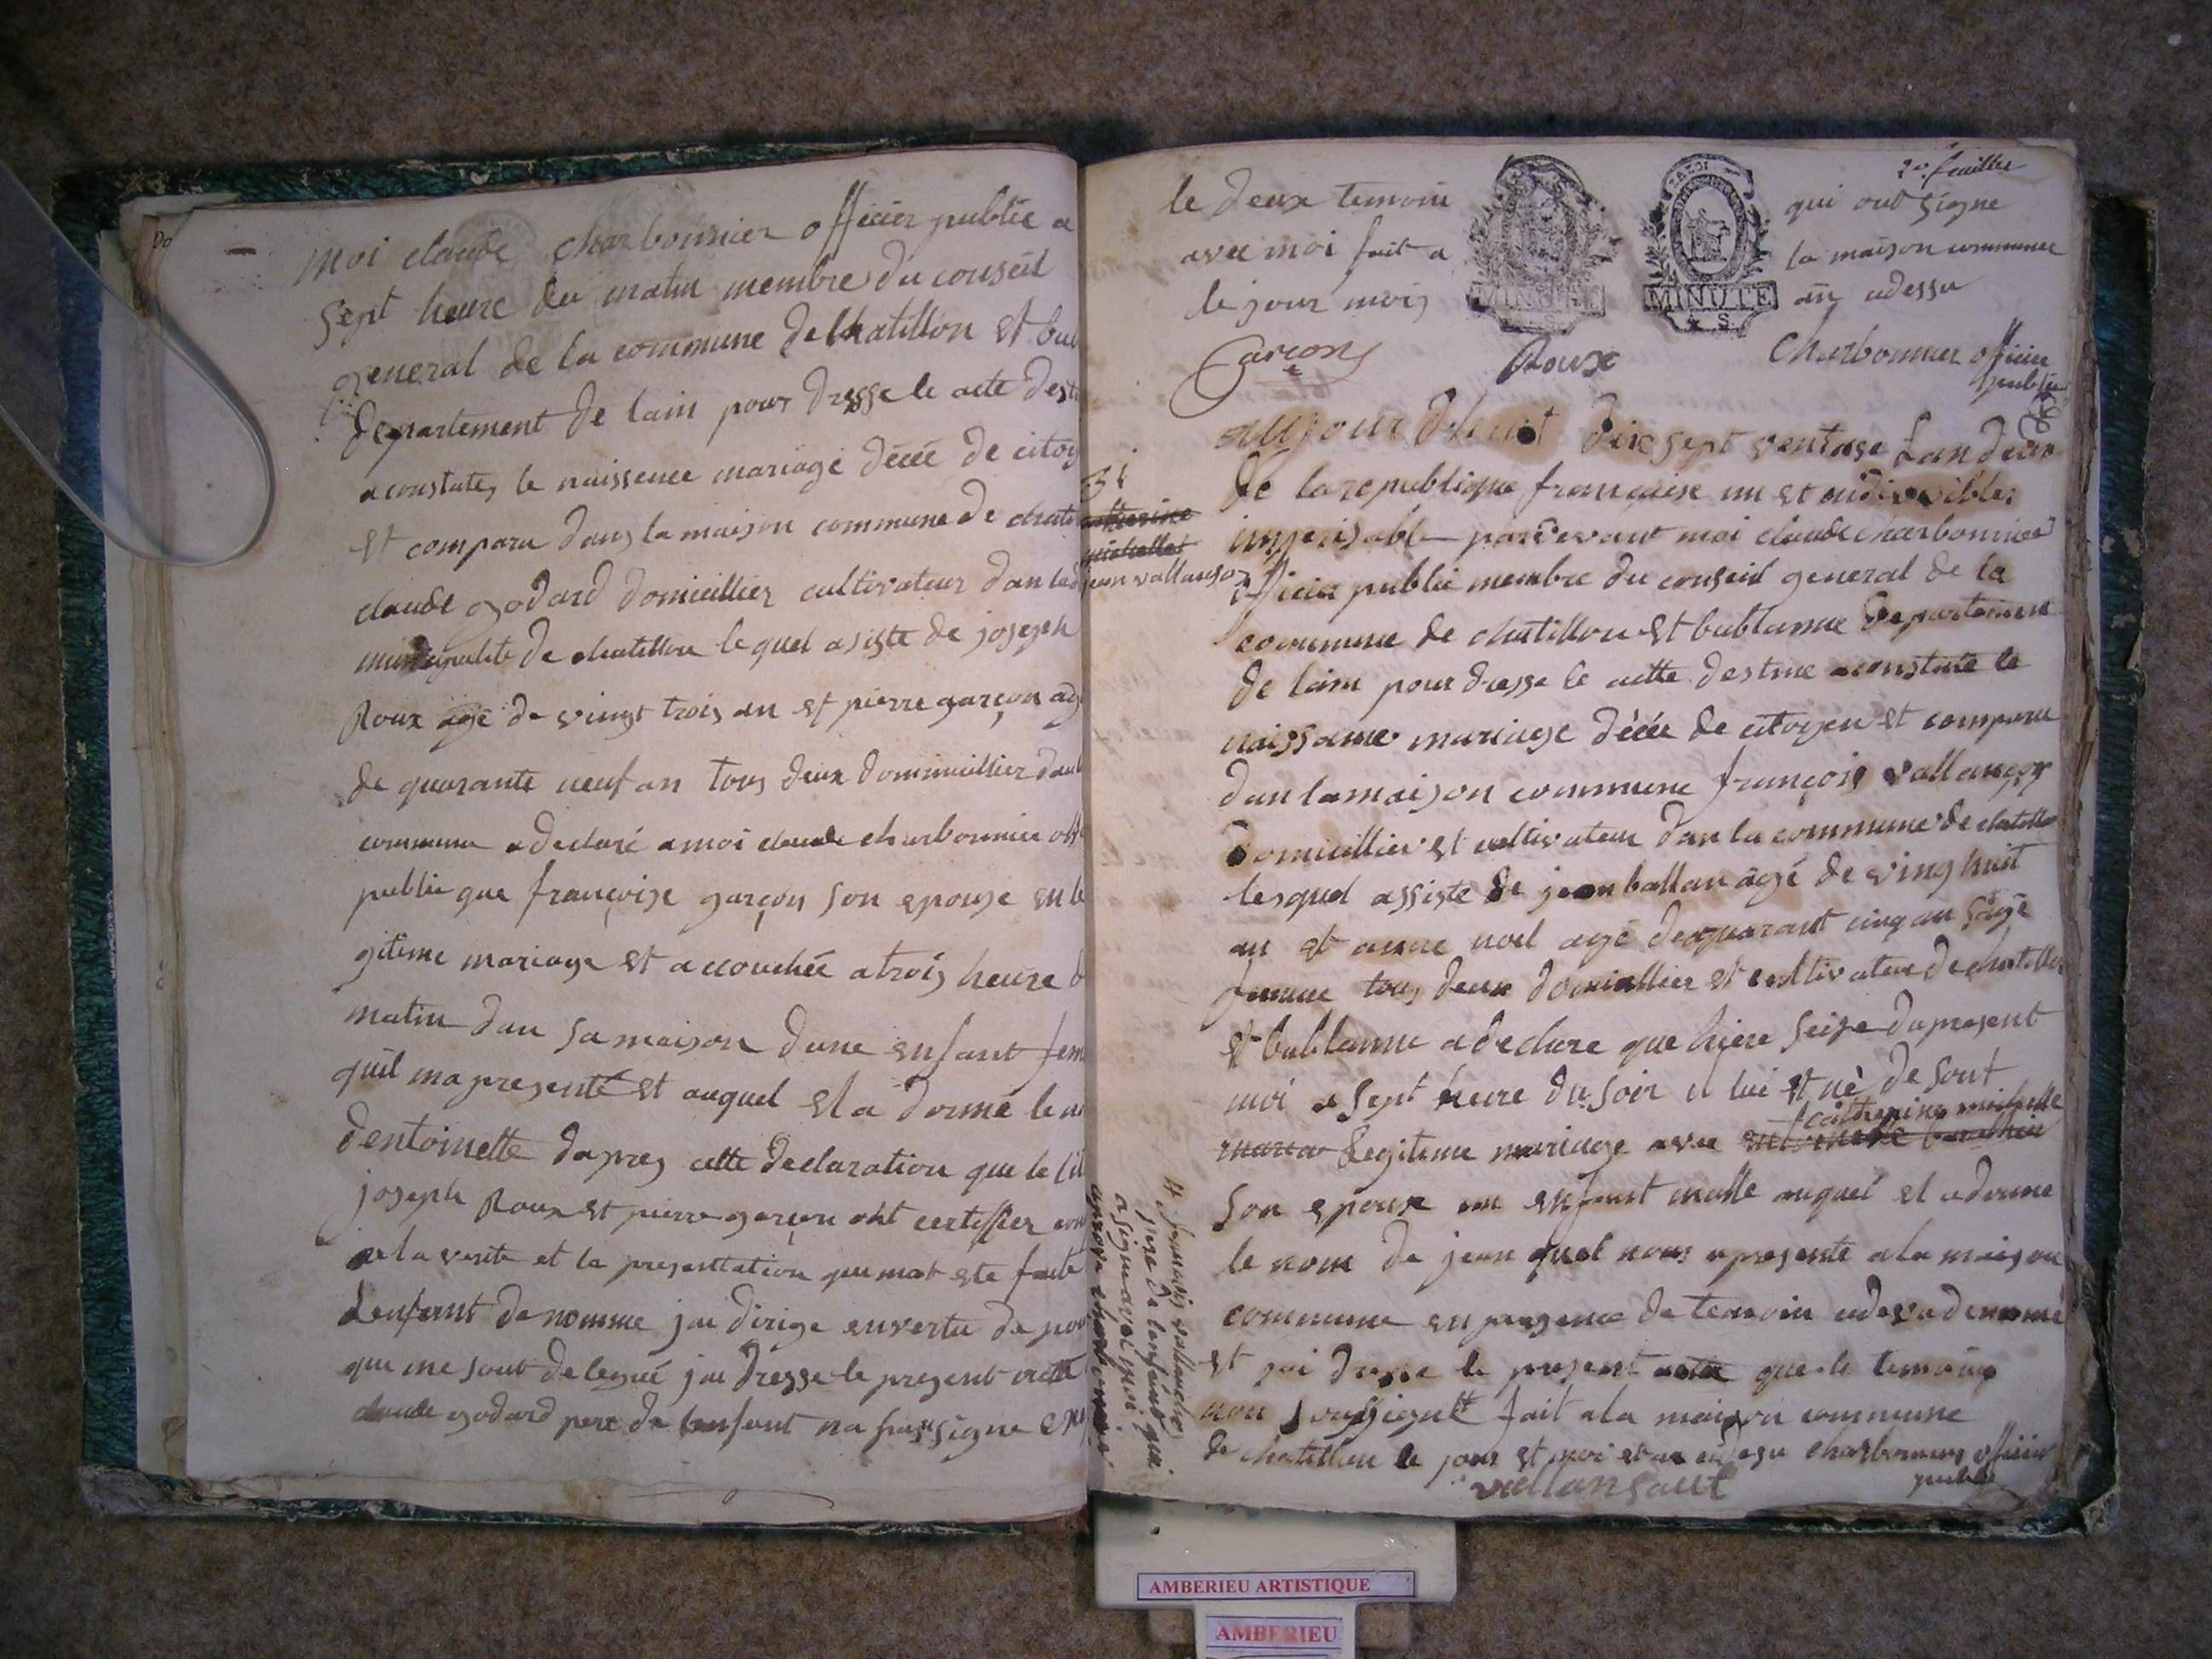 moi claude charbonnier officier publie a
sept heure du matin membre du conseil
general de la commune de Chatillon et bub
departement de lain pour dresse le acte dest
a constate le naissence mariage décée de citoy
et comparu dans la maison commune de chati
claude godard domicillier cultivateur dan lad
municipalite de chatillon le quel asiste de joseph
Roux agé de vingt trois an et pierre garçon ag
de quarante neuf an tous deux dommicillier dan l
commune a declaré a moi claude charbonnier off
publie que françoise garçon son epouse en le
gitime mariage et accouchée a trois heure d
matin dan sa maison dune enfant fem
quil ma presenté et auquel el a donné le n
dentoinette dapres cette declaration que le cit
joseph Roux et pierre garçon ont certiffier con
a la verite et la presentation que mat ete faite
denfant denomme jai dirige envertu de pou
que me sont delegué jai dresse le present acte
claude godard pere de lenfant na pas signe
2e feuillie
le deux temoin qui ont signe
avec moi fait a la maison commune
le jour mois an adessu
MINUTE
MINUTE
Garçon Roux Charbonnier officier
publie
31
catherine
michellet
jean vallanso
aujourdhuit dix sept ventose Lan deux
de la republique française un et indivisible
imperisable pardevant moi claude charbonnier
officier publie membre du conseil general de la
commune de chatillon et bublanne departement
de lain pour dresse le actte destine a constate le
naissance mariage décée de citoyen et comparu
dan la maison commune françois vallançon
domicillier et cultivateur dan la commune de chatillon
lesquel assiste de jean ballan agé de ving huit
an et anne noel agé de quarant cinq an sage
femme tous deux domicillier et cultivateur de chatillon
et bublanne a declare que hiere seize du present
moi a sept heure du soir il lui et né de sont
legitime mariage avec catherine michelle
son epouse un enfant malle auquel el a donne
le nom de jean quel nous a presente a la maison
commune en presence de temoin adesu denommé
et jai dresse le present acte que le temoins
non fait a la maison commune
de chatillon le jour et moi et an adesu charbonnier officier
publie
vallansaut
françois vallanson
pere de lenfant qui
a signe avec moi
aprouve charbonnier
AMBERIEU ARTISTIQUE
AMBERIEU